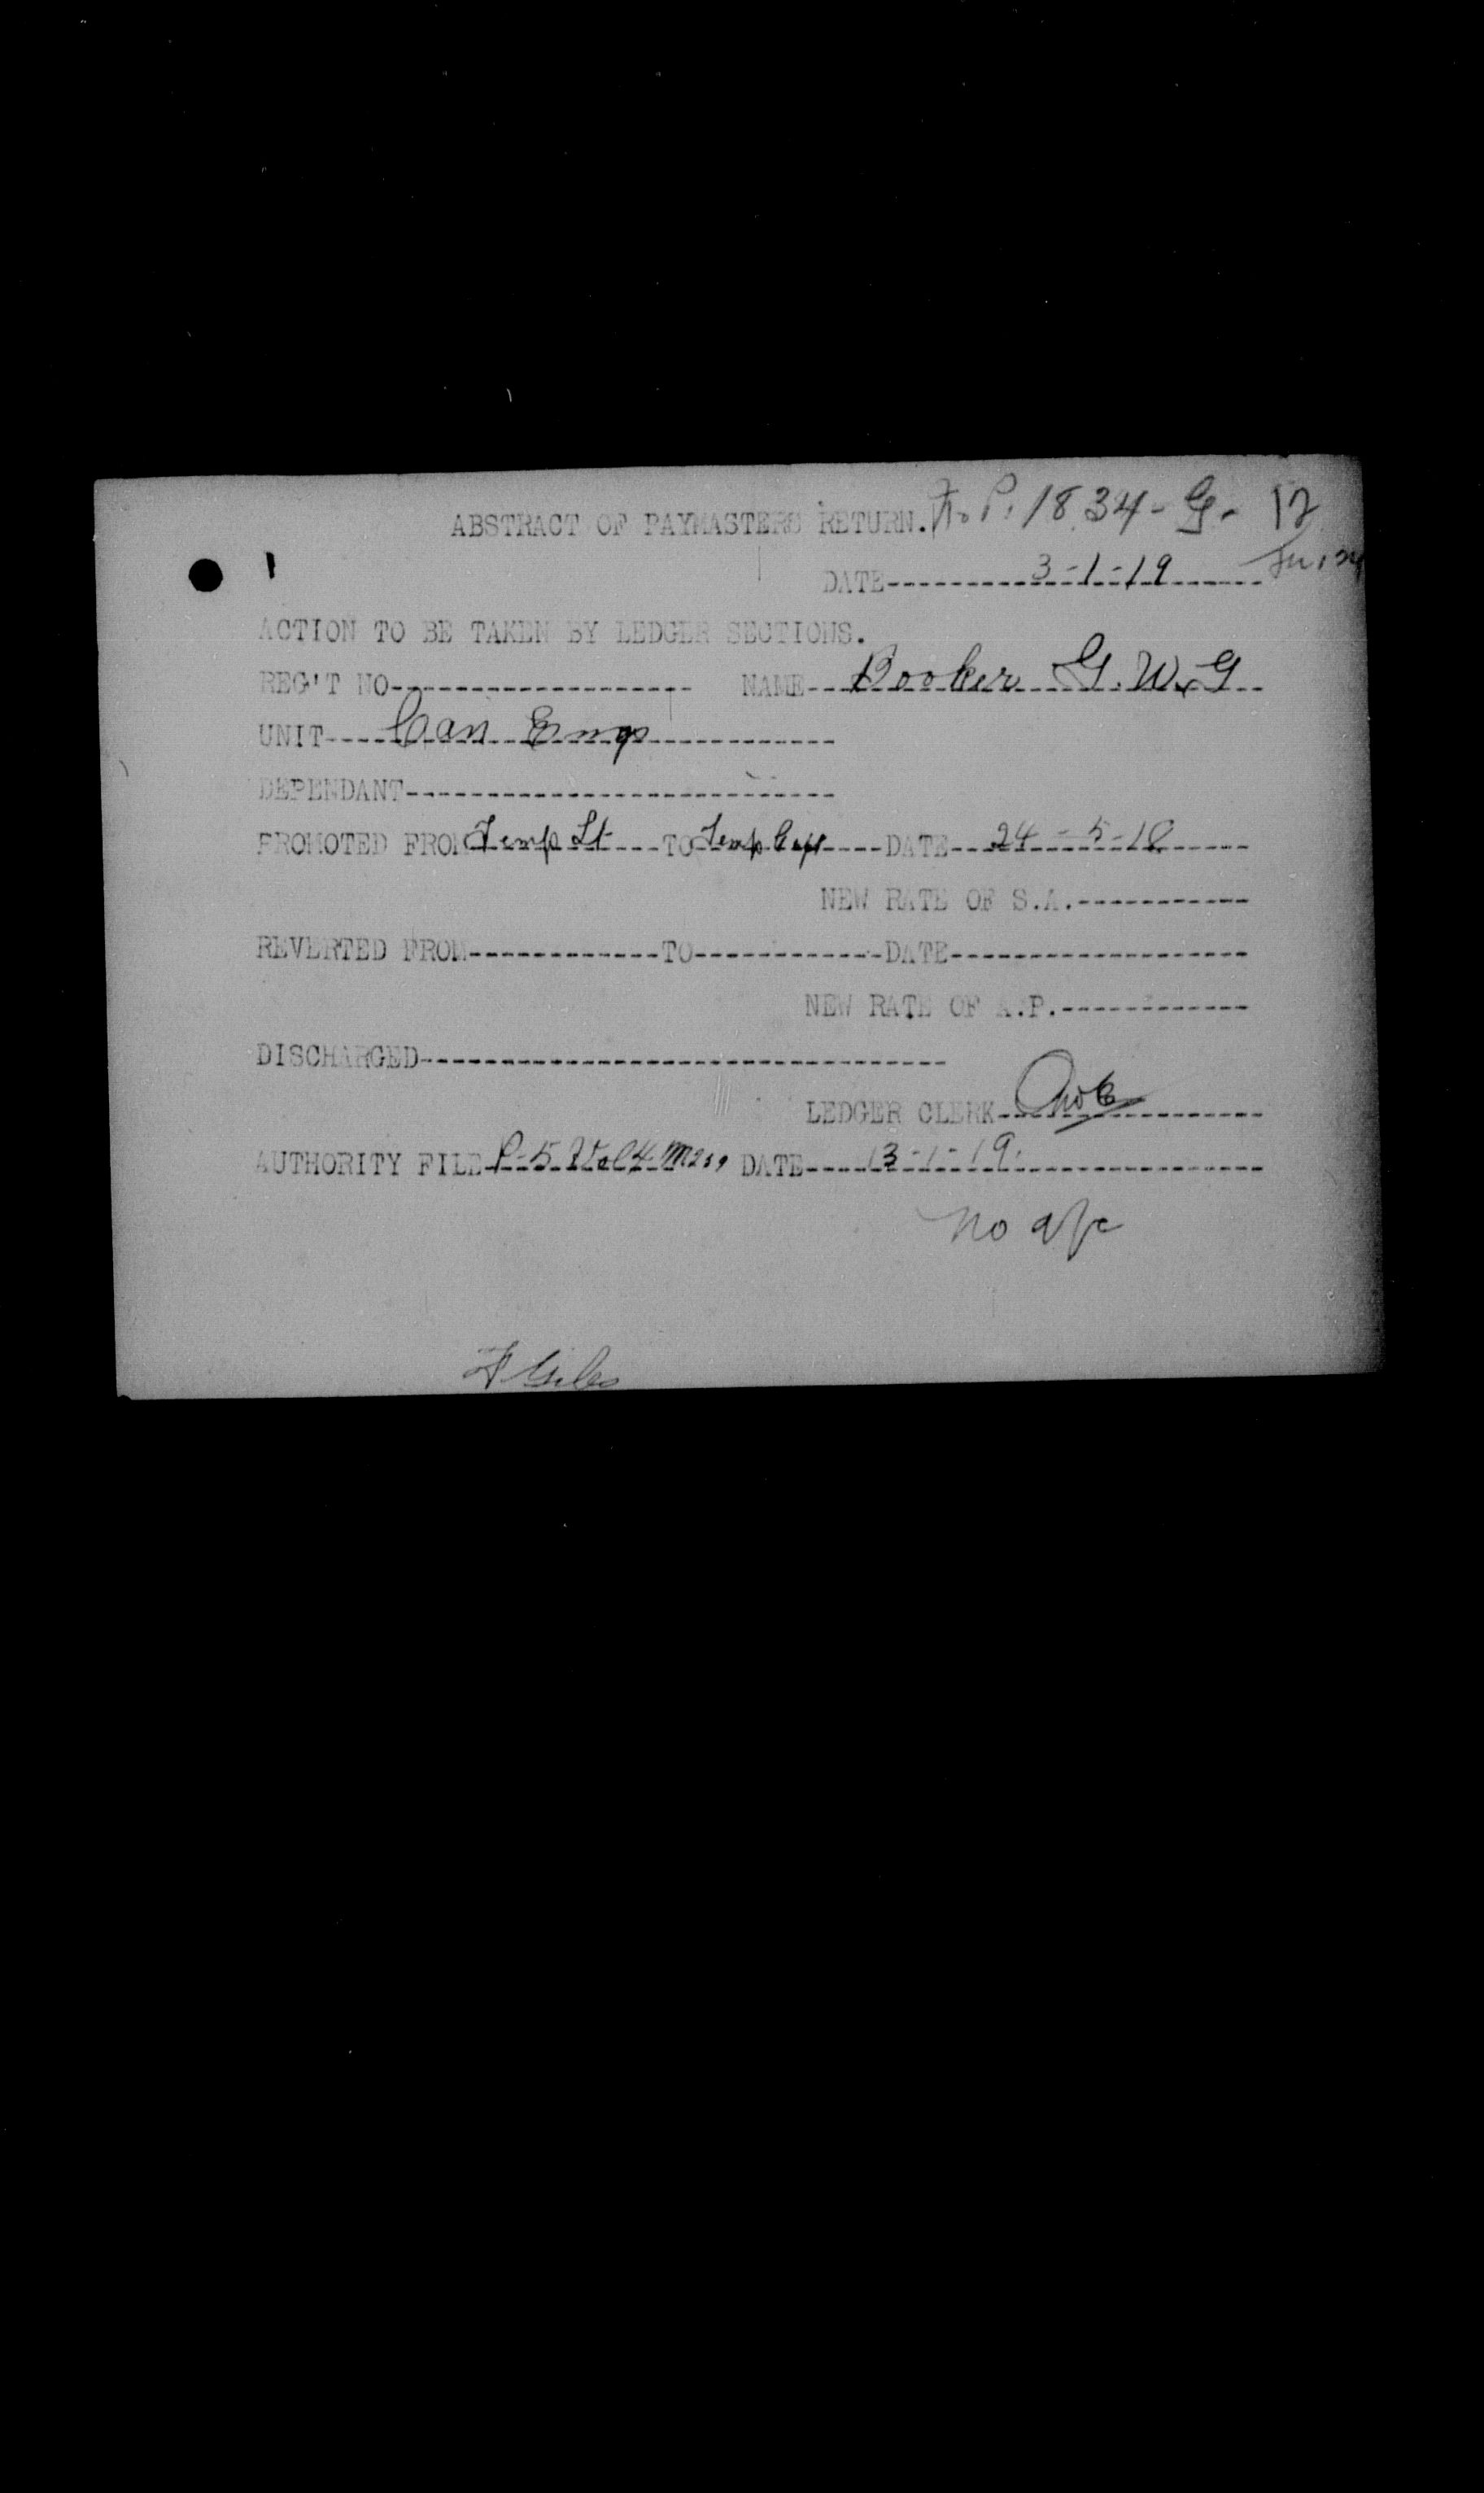 ABSTRACT OF PAYMASTERS RETURN. P. 1834-G- 12
DATE 3-1-19
ACTION TO BE TAKEN BY LEDGER SECTIONS.
REG'T NO NAME Booker G.W.G
UNIT Can Eng
DEPENDANT
PROMOTED FROM Temp Lt TO Temp Capt DATE 24-5-18
NEW RATE OF S.A.
REVERTED FROM TO DATE
NEW RATE OF A.P.
DISCHARGED
LEDGER CLERK
AUTHORITY FILE P-5 Vol 4 DATE 3-1-19
no a/c